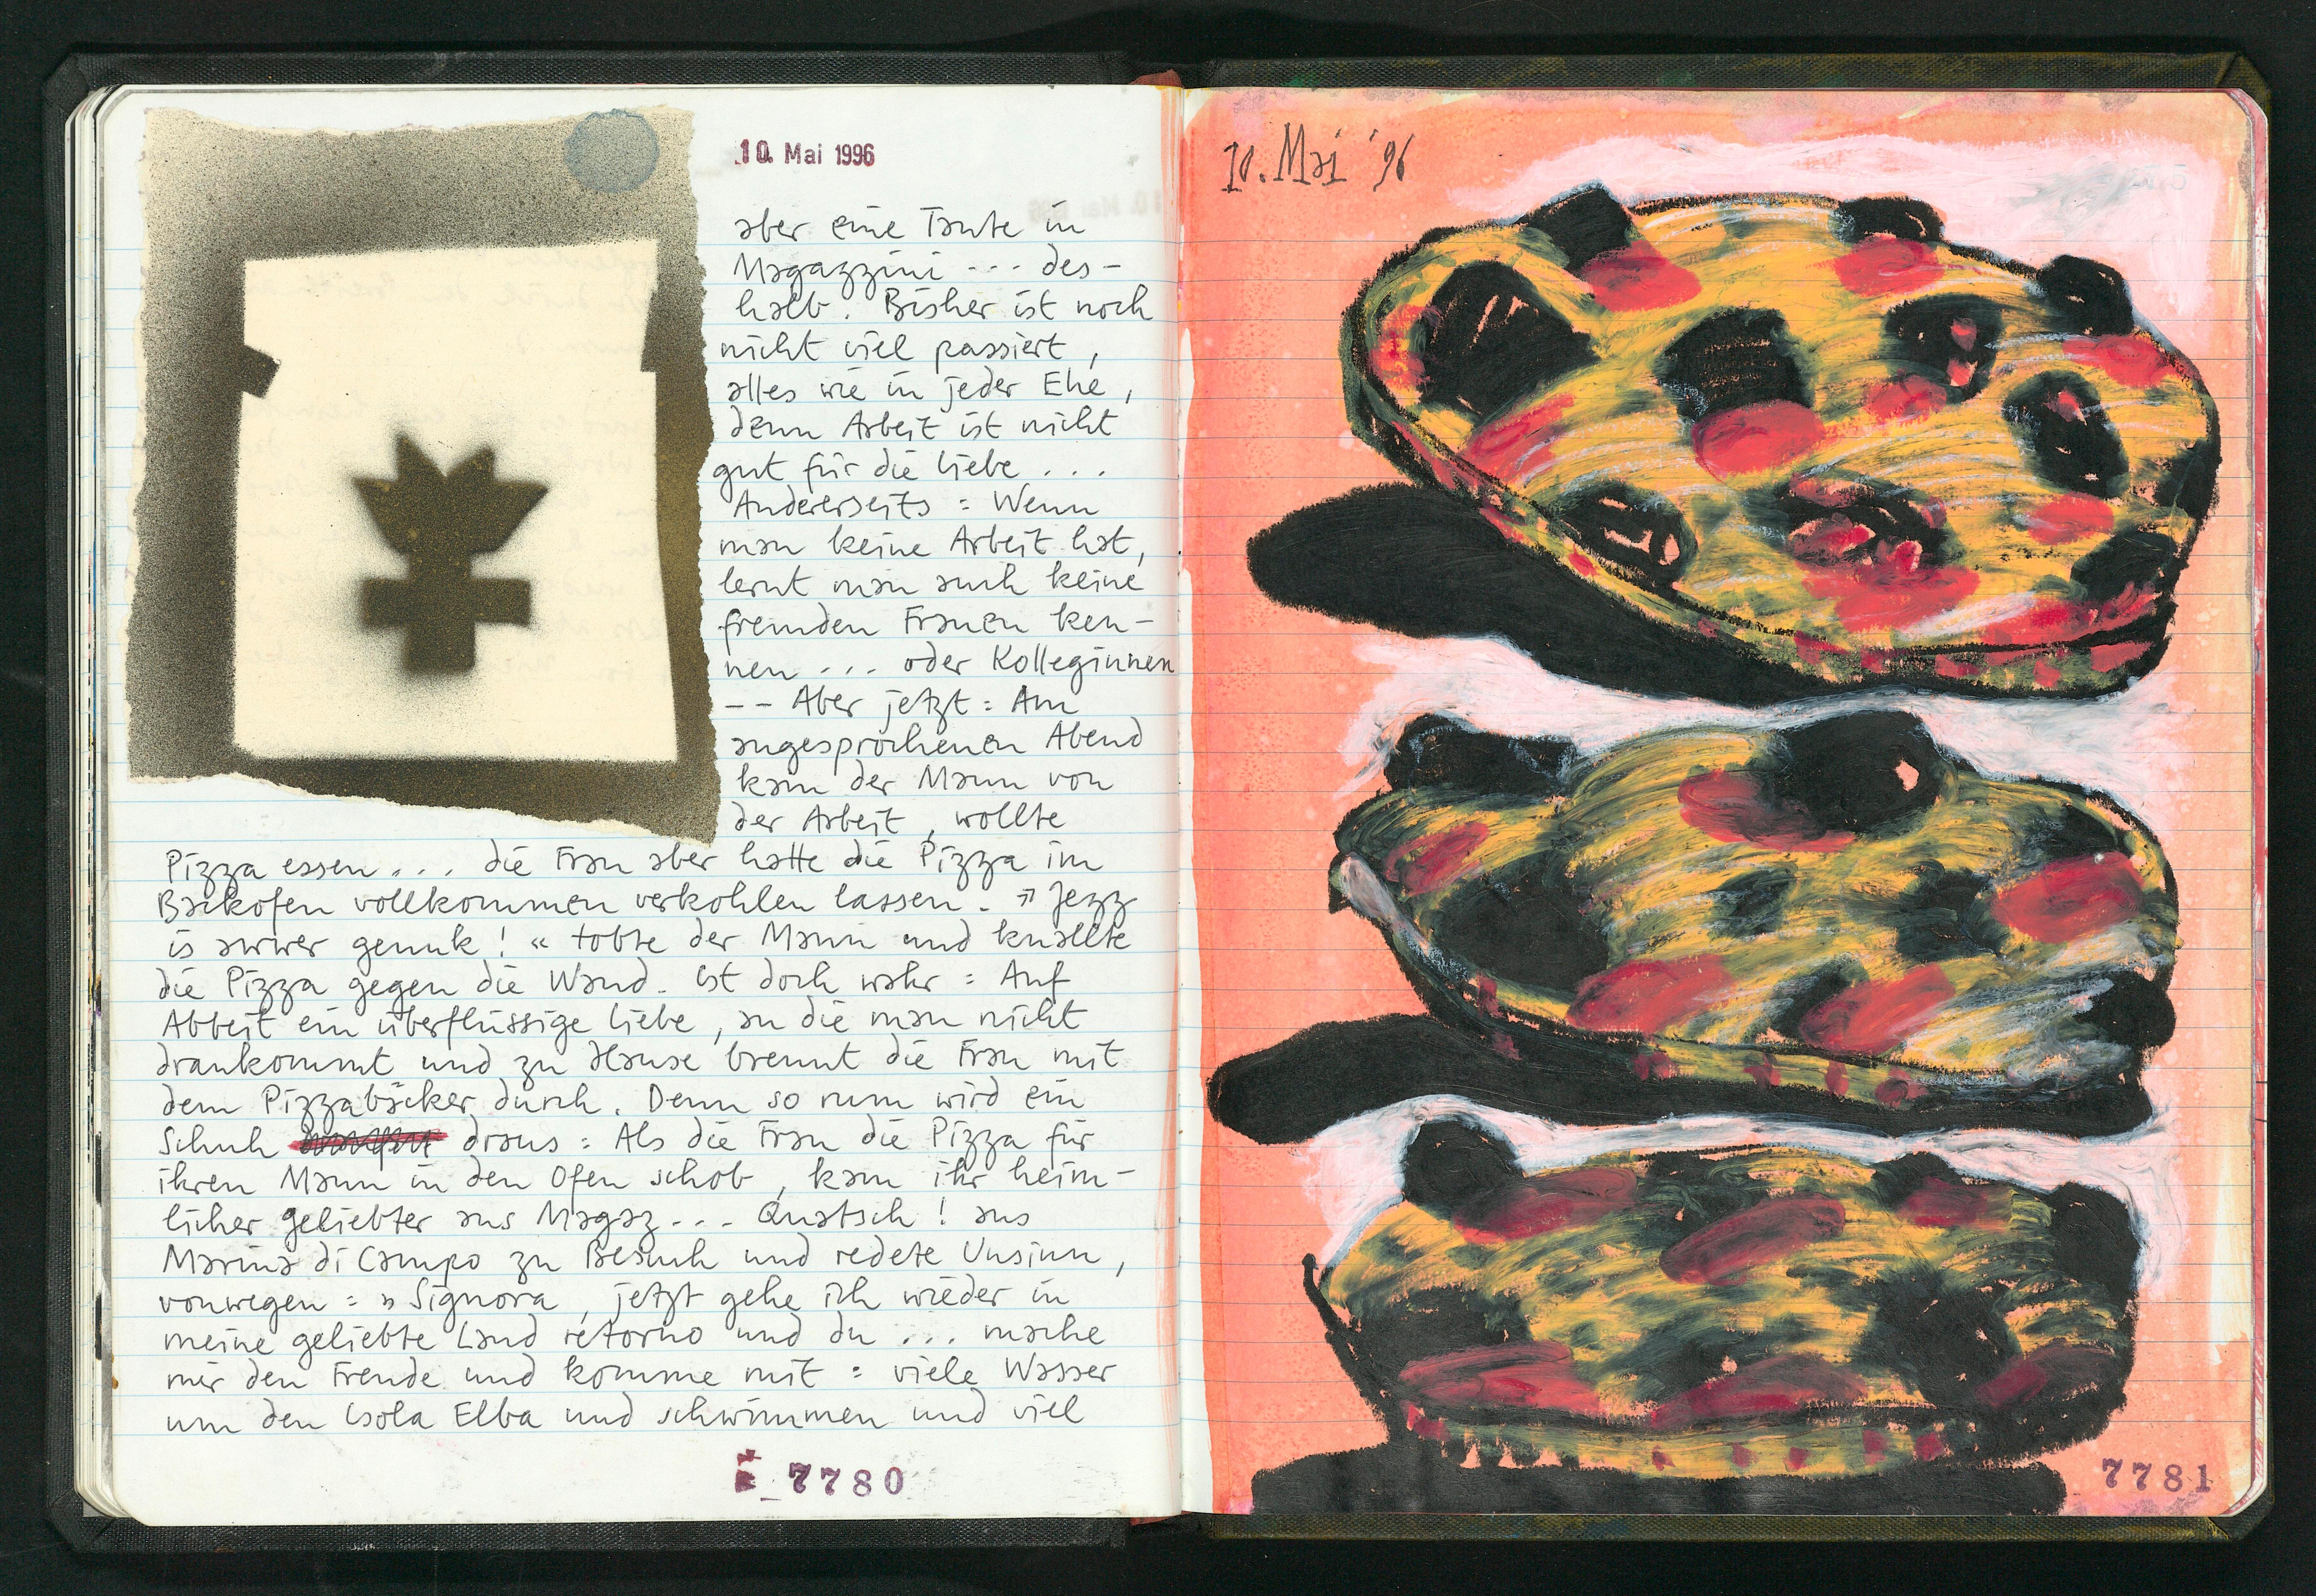 10. Mai 1996
aber eine Tante in
Magazzini --- des-
halb. Bisher ist noch
nicht viel passiert,
alles wie in jeder Ehe,
denn Arbeit ist nicht
gut für die Liebe ...
Andererseits: Wenn
man keine Arbeit hat,
lernt man auch keine
fremden Frauen ken-
nen ... oder Kolleginnen
-- Aber jetzt: Am
angesprochenen Abend
kam der Mann von
der Arbeit, wollte
Pizza essen ... die Frau aber hatte die Pizza im
Backofen vollkommen verkohlen lassen. »Jezz
is awwer genuk!« tobte der Mann und knallte
die Pizza gegen die Wand. Ist doch wahr: Auf
Abbeit ein überflüssige Liebe, an die man nicht
drankommt und zu Hause brennt die Frau mit
dem Pizzabäcker durch. Denn so rum wird ein
Schuh draus: Als die Frau die Pizza für
ihren Mann in den Ofen schob, kam ihr heim-
licher Geliebter aus Magaz... Quatsch! aus
Marina di Campo zu Besuch und redete Unsinn,
vonwegen: »Signora, jetzt gehe ich wieder in
meine geliebte Land retorno und du ... mache
mir den Freude und komme mit: viele Wasser
um den Isola Elba und schwimmen und viel
7780
10. Mai '96
7781